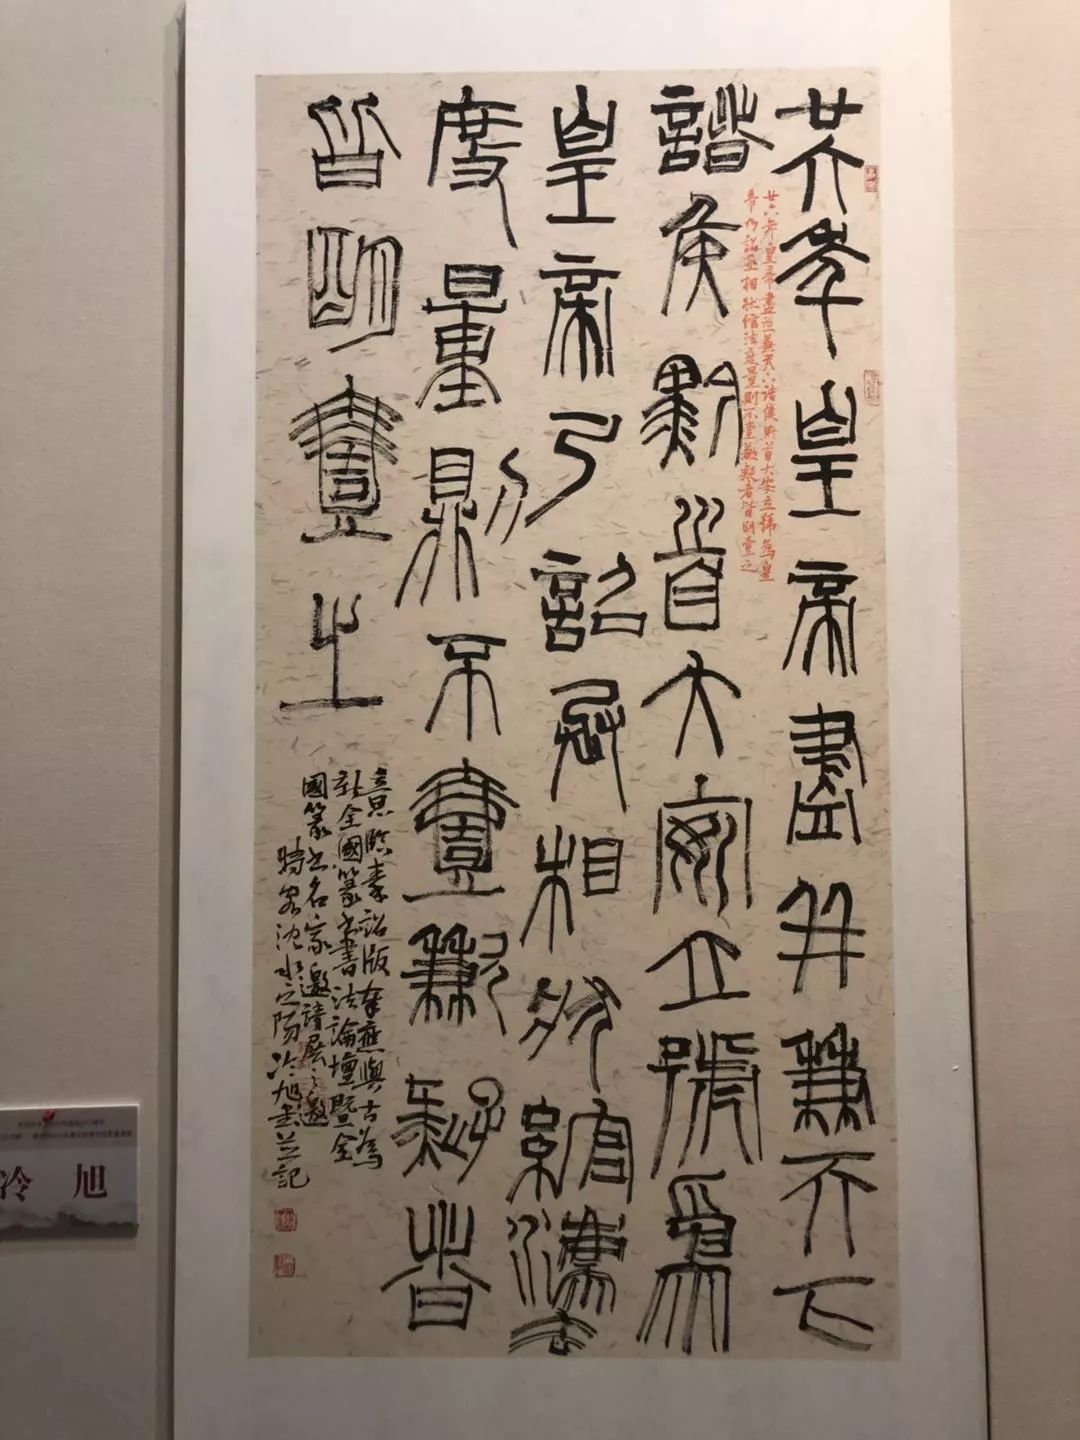 廿六年皇帝盡并兼天下
諸侯黔首大安立號爲
皇帝乃詔丞相狀綰灋
度量則不壹歉疑者
皆明壹之
廿六年皇帝盡并兼天下諸侯黔首大安立號為皇
帝乃詔丞相狀綰法度量則不壹歉疑者皆明壹之
意臨秦詔版奉應與古為
新全國篆書書法論壇暨全
國篆書名家邀請展之邀
時客沈水之陽冷旭書並記
冷旭